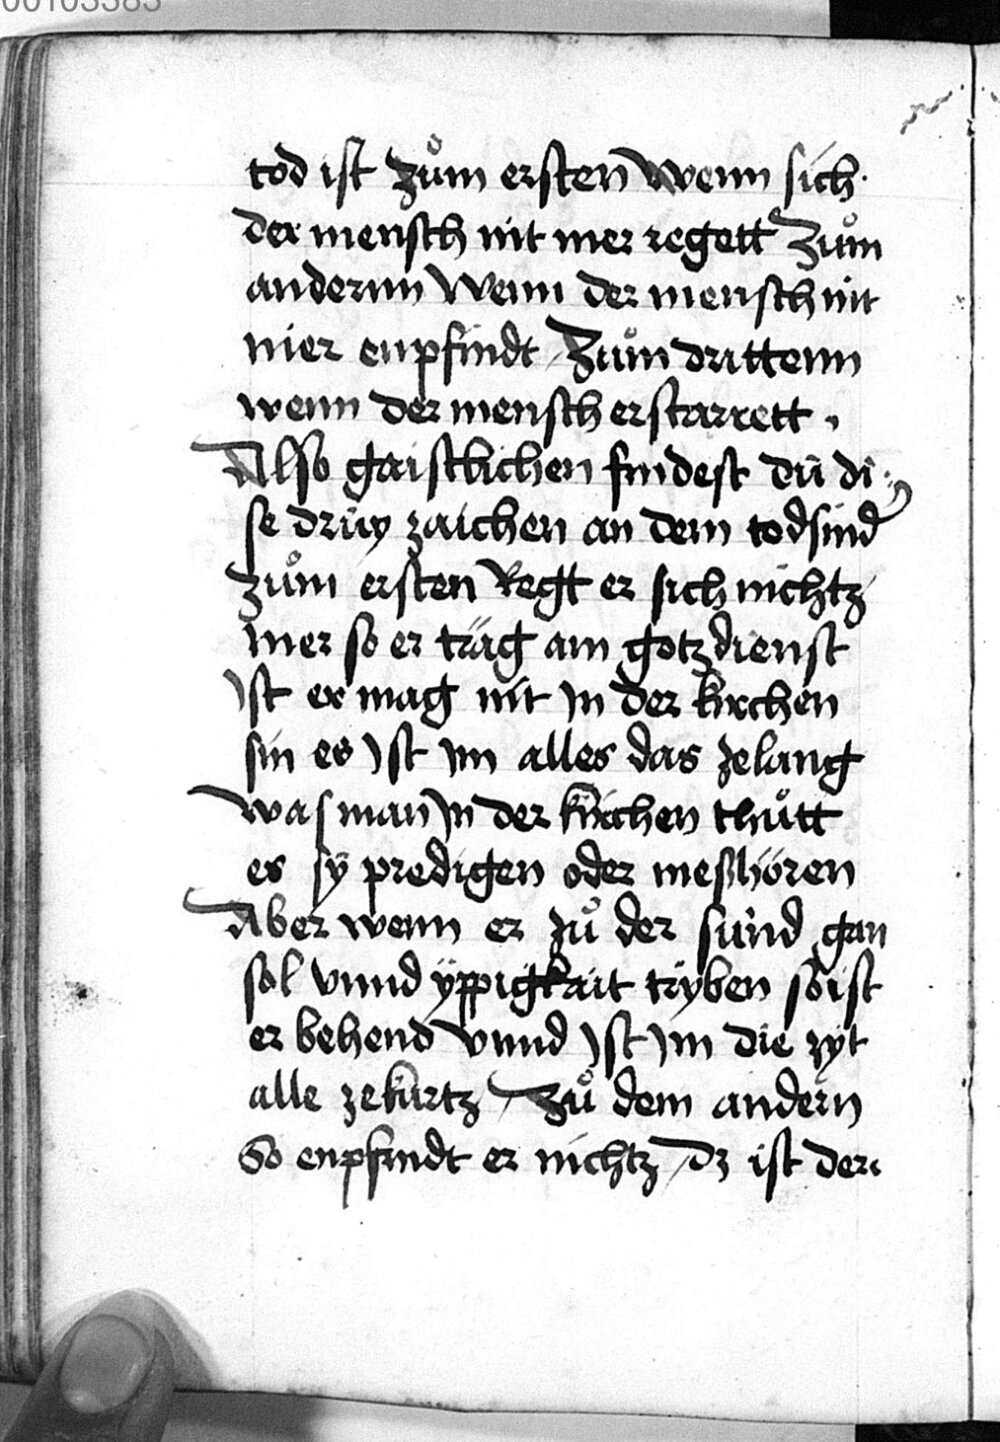 00103383
tod ist zuͦm ersten wenn sich
der mensch nit mer regett Zuͦm
andernn Wenn der mensch nit
mer enpfindt / Zuͦm drittenn
wenn der mensch erstarrett .
Also gaistlichen findest dü di
se drüy zaichen an dem todsind
zuͦm ersten Regtt er sich nichtz
mer so er träg am gotzdienst
Jst er mag nit jn der kirchen
sin es Jst jm alles das zelang
was man jn der kirchen thuͦtt
es sÿ predigen oder meßhören
Aber wenn er zuͦ der sünd gan
sol vnnd ÿppigkait tryben so ist
er behend vnnd Jst jm die zÿt
alle zekürtz / Zuͦ dem andern
So enpfindt er nichtz / dz ist der